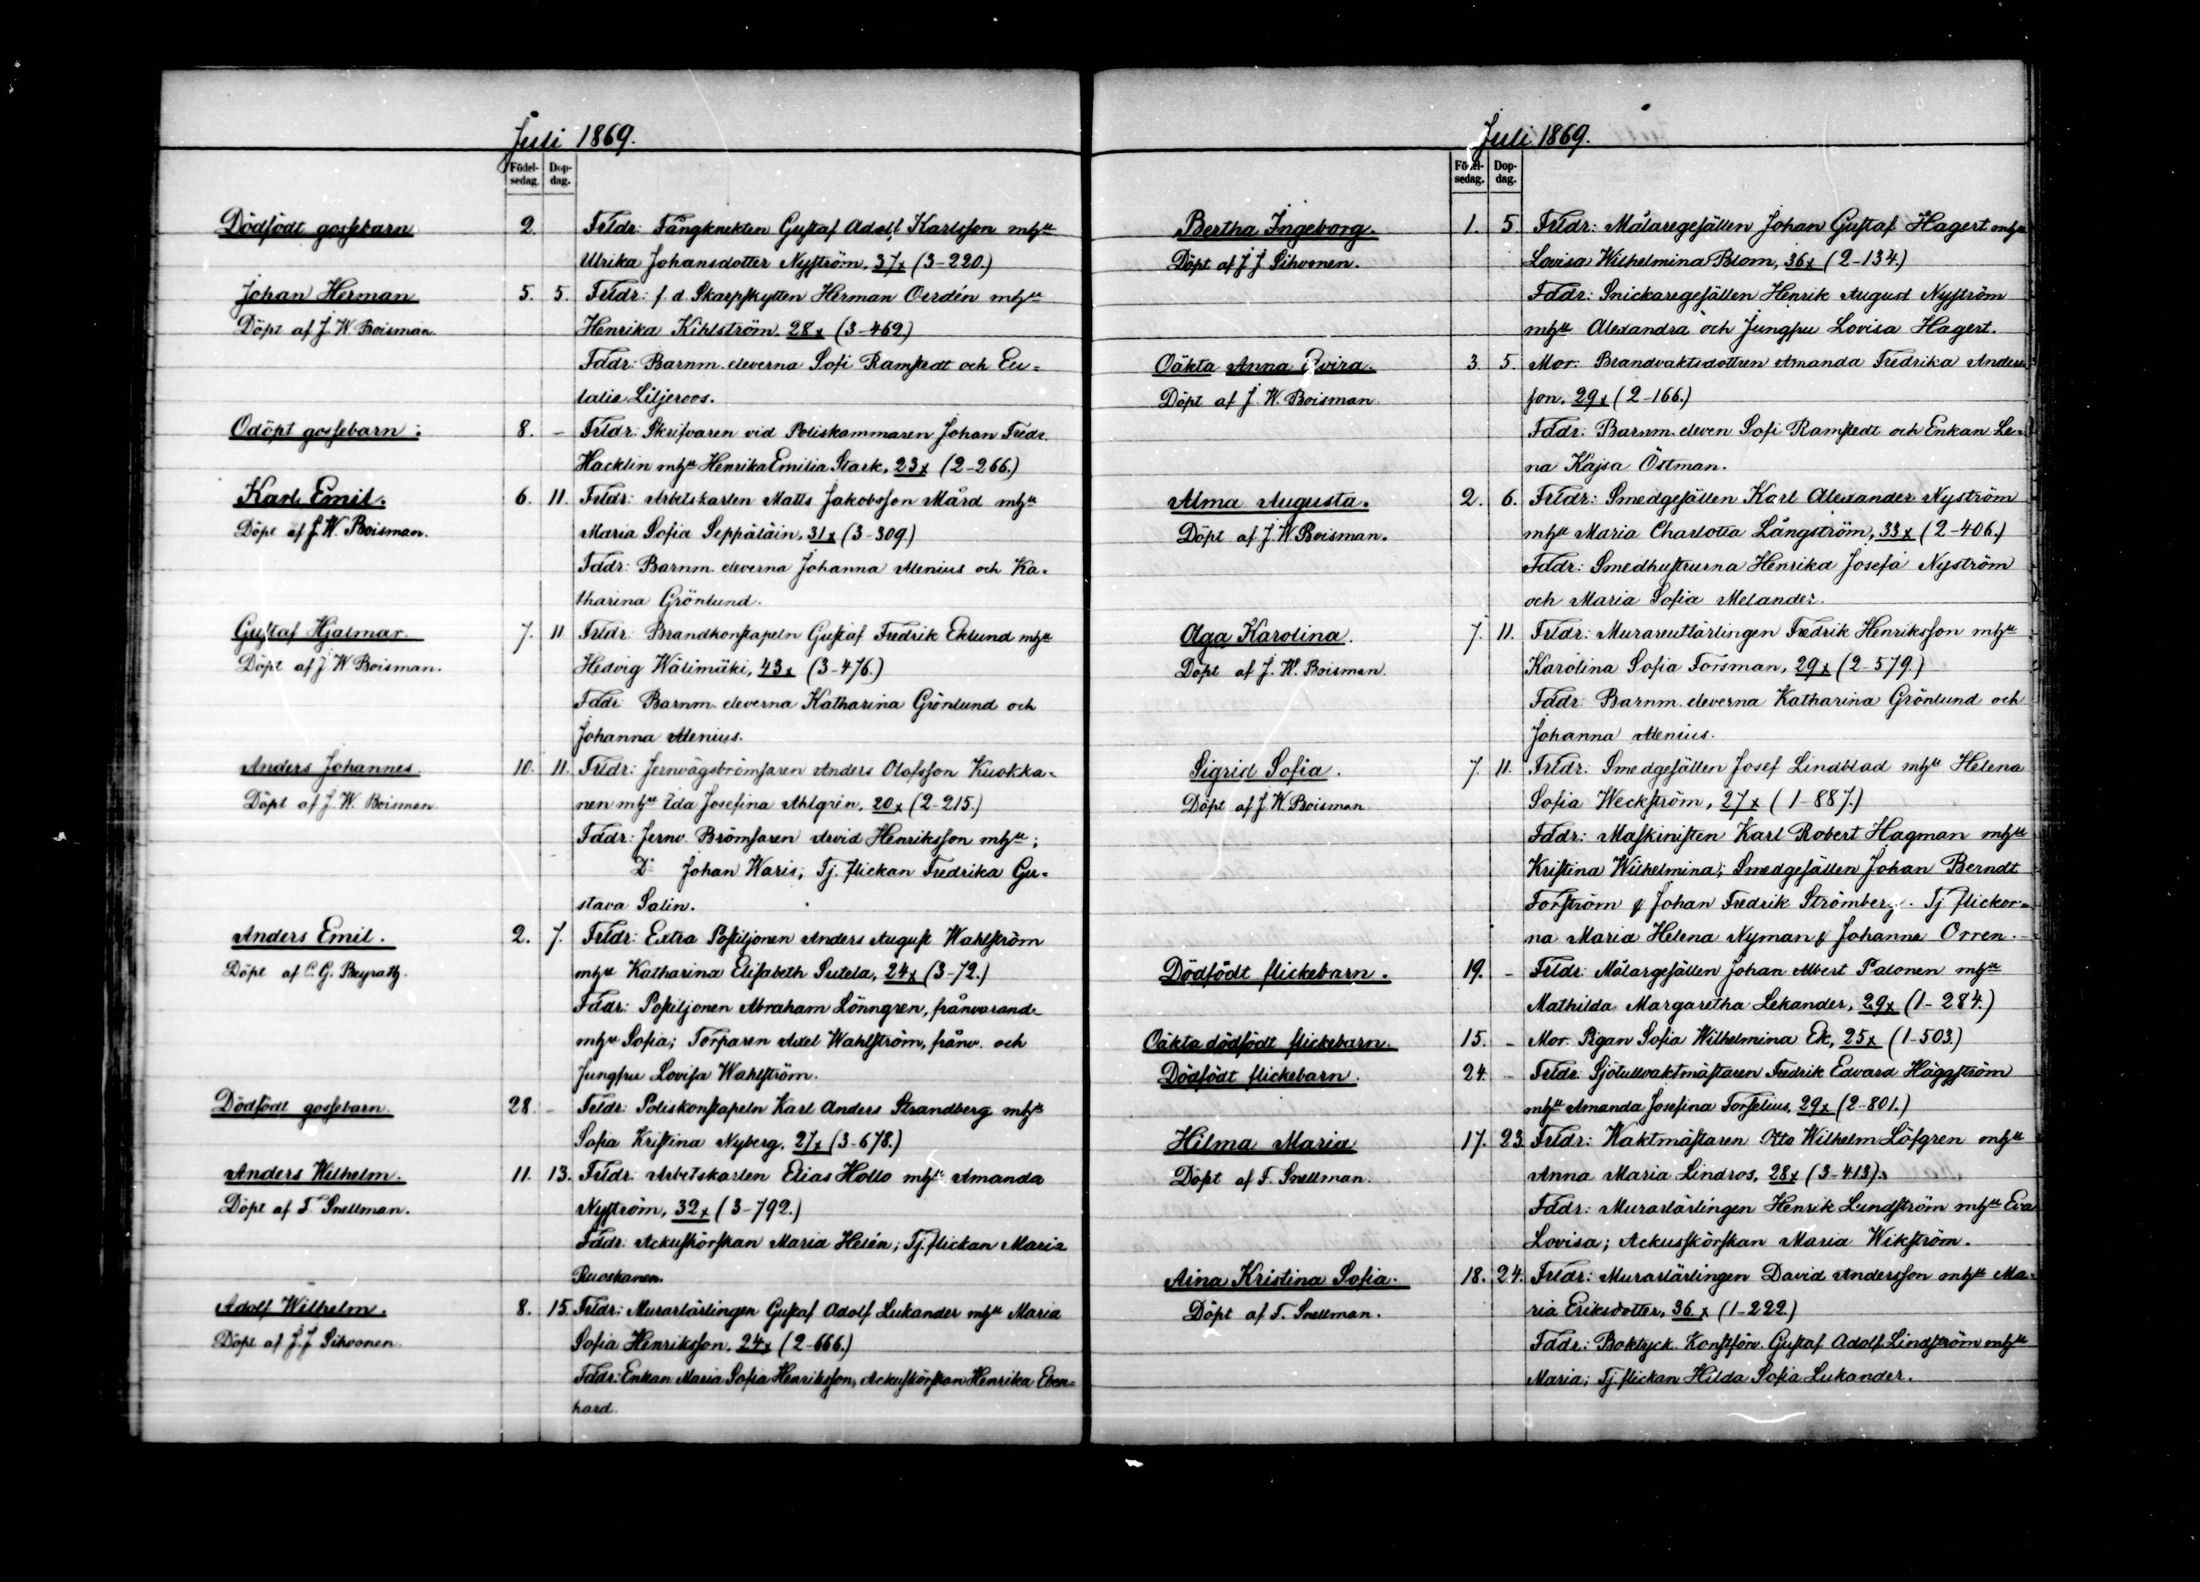 Juli 1869.
Födel-
sedag.
Dop-
dag.
Dödfödt gossebarn 2. Frldr: Fångknekten Gustaf Adolf Karlsson mhu
Ulrika Johansdotter Nyström, 37x (3-220.)
Johan Herman 5. 5. Frldr: f. d. Skarpskytten Herman Oerdén mhu
Döpt af J. W. Boisman. Henrika Kihlström, 28x (3-469)
Fddr: Barnm. eleverna Sofi Ramstedt och Eu=
lalia Liljeroos.
Odöpt gossebarn: 8. - Frldr: Skrifvaren vid Poliskammaren Johan Fredr.
Hacklin mhu Henrika Emilia Stark, 23x (2-266.)
Karl Emil. 6. 11. Frldr: Arbetskarlen Matts Jakobsson Mård mhu
Döpt af J. W. Boisman. Maria Sofia Seppäläin, 31x (3-309)
Fddr: Barnm. eleverna Johanna Alenius och Ka=
tharina Grönlund.
Gustaf Hjalmar. 7. 11. Frldr: Brandkonstapeln Gustaf Fredrik Eklund mhu
Döpt af J. W. Boisman. Hedvig Wälimäki, 43x (3-476.)
Fddr: Barnm. eleverna Katharina Grönlund och
Johanna Alenius.
Anders Johannes. 10. 11. Frldr: Jernvägsbromsaren Anders Olofsson Kuokka=
Döpt af J. W. Boisman. nen mhu Ida Josefina Ahlgrén, 20x (2-215.)
Fddr: Jernv. Brömsaren Arvid Henriksson mhu;
Do Johan Waris; Tj. flickan Fredrika Gu=
stava Salin.
Anders Emil. 2. 7. Frldr: Extra Postiljonen Anders August Wahlström
Döpt af C. G. Beyrath. mhu Katharina Elisabeth Sutela, 24x (3-72.)
Fddr: Postiljonen Abraham Lönngren, frånvarand-
mhu Sofia; Torparen Axel Wahlström, frånv. och
Jungfru Lovisa Wahlström.
Dödfödt gossebarn. 28. - Frldr: Poliskonstapeln Karl Anders Strandberg mhu
Sofia Kristina Nyberg, 27x (3-678.)
Anders Wilhelm. 11. 13. Frldr: Arbetskarlen Elias Hollo mhu Amanda
Döpt af F. Snellman. Nyström, 32x (3-792.)
Fddr: Ackuskörskan Maria Helén; Tj. flickan Maria
Ruoskanen.
Adolf Wilhelm. 8. 15. Frldr: Murarlärlingen Gustaf Adolf Lukander mhu Maria
Döpt af J. J. Sihvonen. Sofia Henriksson, 24x (2-666.)
Fddr: Enkan Maria Sofia Henriksson, Ackuskörskan Henrika Eben=
hard.
Juli 1869.
Födel-
sedag.
Dop-
dag.
Bertha Ingeborg. 1. 5. Frldr: Målaregesällen Johan Gustaf Hagert mhu
Döpt af J. J. Sihvonen. Lovisa Wilhelmina Blom, 36x (2-134.)
Fddr: Snickaregesällen Henrik August Nyström
mhu Alexandra och Jungfru Lovisa Hagert.
Oäkta Anna Elvira. 3. 5. Mor: Brandvaktsdottren Amanda Fredrika Anders=
Döpt af J. W. Boisman. son, 29x (2-166.)
Fddr: Barnm. eleven Sofi Ramstedt och Enkan Le=
na Kajsa Östman.
Alma Augusta. 2. 6. Frldr: Smedgesällen Karl Alexander Nyström
Döpt af J. W. Boisman. mhu Maria Charlotta Långström, 33x (2-406.)
Fddr: Smedhustrurna Henrika Josefa Nyström
och Maria Sofia Melander.
Olga Karolina. 7. 11. Frldr: Murareutlärlingen Fredrik Henriksson mhu
Döpt af J. W. Boisman. Karolina Sofia Forsman, 29x (2-579.)
Fddr: Barnm. eleverna Katharina Grönlund och
Johanna Alenius.
Sigrid Sofia. 7. 11. Frldr: Smedgesällen Josef Lindblad mhu Helena
Döpt af J. W. Boisman Sofia Weckström, 27x (1-887.)
Fddr: Maskinisten Karl Robert Hagman mhu
Kristina Wilhelmina; Smedgesällen Johan Berndt
Forström & Johan Fredrik Strömberg. Tj flickor=
na Maria Helena Nyman & Johanna Orren.
Dödfödt flickebarn. 19. - Frldr: Målargesällen Johan Albert Palonen mhu
Mathilda Margaretha Lekander, 29x (1-284.)
Oäkta dödfödt flickebarn. 15. - Mor: Pigan Sofia Wilhelmina Ek, 25x (1-503.)
Dödfödt flickebarn. 24. - Frldr: Sjötullvaktmästaren Fredrik Edvard Häggström
mhu Amanda Josefina Forselius, 29x (2-801.)
Hilma Maria 17. 23. Frldr: Waktmästaren Otto Wilhelm Löfgren mhu
Döpt af F. Snellman. Anna Maria Lindros, 28x (3-413).
Fddr: Murarlärlingen Henrik Lundström mhu Eva
Lovisa; Ackusskörskan Maria Wikström.
Aina Kristina Sofia. 18. 24. Frldr: Murarlärlingen David Andersson mhu Ma=
Döpt af F. Snellman. ria Eriksdotter, 36x (1-222.)
Fddr: Boktryck. Konstförv. Gustaf Adolf Lindström mhu
Maria; Tj flickan Hilda Sofia Lukander.